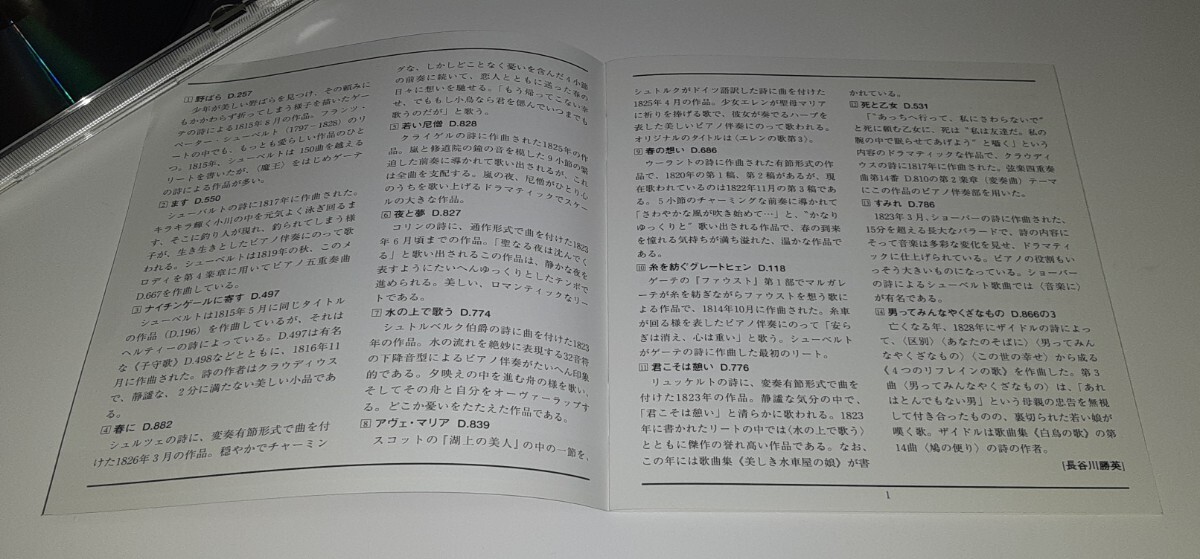 1 野ばら D.257
少年が美しい野ばらを見つけ、その頼みに
もかかわらず折ってしまう様子を描いたゲー
テの詩による1815年8月の作品。フランツ・
ペーター・シューベルト(1797-1828)のリ
ートの中でも、もっとも愛らしい作品のひと
つ。1815年、シューベルトは150曲を越える
リートを書いたが、〈魔王〉をはじめゲーテ
の詩による作品が多い。
2 ます D.550
シューバルトの詩に1817年に作曲された。
キラキラ輝く小川の中を元気よく泳ぎ回るま
す、そこに釣り人が現れ、釣られてしまう様
子が、生き生きとしたピアノ伴奏にのって歌
われる。シューベルトは1819年の秋、このメ
ロディを第4楽章に用いてピアノ五重奏曲
D.667を作曲している。
3 ナイチンゲールに寄す D.497
シューベルトは1815年5月に同じタイトル
の作品(D.196)を作曲しているが、それは
ヘルティーの詩によっている。D.497は有名
な《子守歌》D.498などとともに、1816年11
月に作曲された。詩の作者はクラウディウス
で、静謐な、2分に満たない美しい小品であ
る。
4 春に D.882
シュルツェの詩に、変奏有節形式で曲を付
けた1826年3月の作品。穏やかでチャーミン
グな、しかしどことなく憂いを含んだ4小節
の前奏に続いて、恋人とともに送った春の
日々に想いを馳せる。「もう帰ってこない幸
せ、でももし小鳥なら君を偲んでいつまでも
歌うのだが」と歌う。
5 若い尼僧 D.828
クライゲルの詩に作曲された1825年の作
品。嵐と修道院の鐘の音を模した9小節の緊
迫した前奏に導かれて歌い出されるが、これ
は全曲を支配する。嵐の夜、尼僧がひとり心
のうちを歌い上げるドラマティックでスケー
ルの大きな作品。
6 夜と夢 D.827
コリンの詩に、通作形式で曲を付けた1823
年6月頃までの作品。「聖なる夜は沈んでく
る」と歌い出されるこの作品は、静かな夜を
表すようにたいへんゆっくりとしたテンポで
進められる。美しい、ロマンティックなリー
トである。
7 水の上で歌う D.774
シュトルベルク伯爵の詩に曲を付けた1823
年の作品。水の流れを絶妙に表現する32音符
の下降音型によるピアノ伴奏がたいへん印象
的である。夕映えの中を進む舟の様を歌い、
そしてその舟と自分をオーヴァーラップす
る。どこか憂いをたたえた作品である。
8 アヴェ・マリア D.839
スコットの『湖上の美人』の中の一節を、
シュトルクがドイツ語訳した詩に曲を付けた
1825年4月の作品。少女エレンが聖母マリア
に祈りを捧げる歌で、彼女が奏でるハープを
表した美しいピアノ伴奏にのって歌われる。
オリジナルのタイトルは〈エレンの歌第3〉。
9 春の想い D.686
ウーラントの詩に作曲された有節形式の作
品で、1820年の第1稿、第2稿があるが、現
在歌われているのは1822年11月の第3稿であ
る。5小節のチャーミングな前奏に導かれて
「さわやかな風が吹き始めて…」と、"かなり
ゆっくりと"歌い出される作品で、春の到来
を憧れる気持ちが満ち溢れた、温かな作品で
ある。
10 糸を紡ぐグレートヒェン D.118
ゲーテの『ファウスト』第1部でマルガレ
ーテが糸を紡ぎながらファウストを想う歌に
よる作品で、1814年10月に作曲された。糸車
が回る様を表したピアノ伴奏にのって「安ら
ぎは消え、心は重い」と歌う。シューベルト
がゲーテの詩に作曲した最初のリート。
11 君こそは憩い D.776
リュッケルトの詩に、変奏有節形式で曲を
付けた1823年の作品。静謐な気分の中で、
「君こそは憩い」と清らかに歌われる。1823
年に書かれたリートの中では〈水の上で歌う〉
とともに傑作の誉れ高い作品である。なお、
この年には歌曲集《美しき水車屋の娘》が書
かれている。
12 死と乙女 D.531
「"あっちへ行って、私にさわらないで"
と死に頼む乙女に、死は"私は友達だ。私の
腕の中で眠らせてあげよう"と囁く」という
内容のドラマティックな作品で、クラウディ
ウスの詩に1817年に作曲された。弦楽四重奏
曲第14番 D.810の第2楽章(変奏曲)テーマ
にこの作品のピアノ伴奏部を用いた。
13 すみれ D.786
1823年3月、ショーバーの詩に作曲された、
15分を超える長大なバラードで、詩の内容に
そって音楽は多彩な変化を見せ、ドラマティ
ックに仕上げられている。ピアノの役割もい
っそう大きいものになっている。ショーバー
の詩によるシューベルト歌曲では〈音楽に〉
が有名である。
14 男ってみんなやくざなもの D.866の3
亡くなる年、1828年にザイドルの詩によっ
て、〈区別〉〈あなたのそばに〉〈男ってみ
んなやくざなもの〉〈この世の幸せ〉から成る
《4つのリフレインの歌》を作曲した。第3
曲〈男ってみんなやくざなもの〉は、「あれ
はとんでもない男」という母親の忠告を無視
して付き合ったものの、裏切られた若い娘が
嘆く歌。ザイドルは歌曲集《白鳥の歌》の第
14曲〈鳩の便り〉の詩の作者。
[長谷川勝英]
1